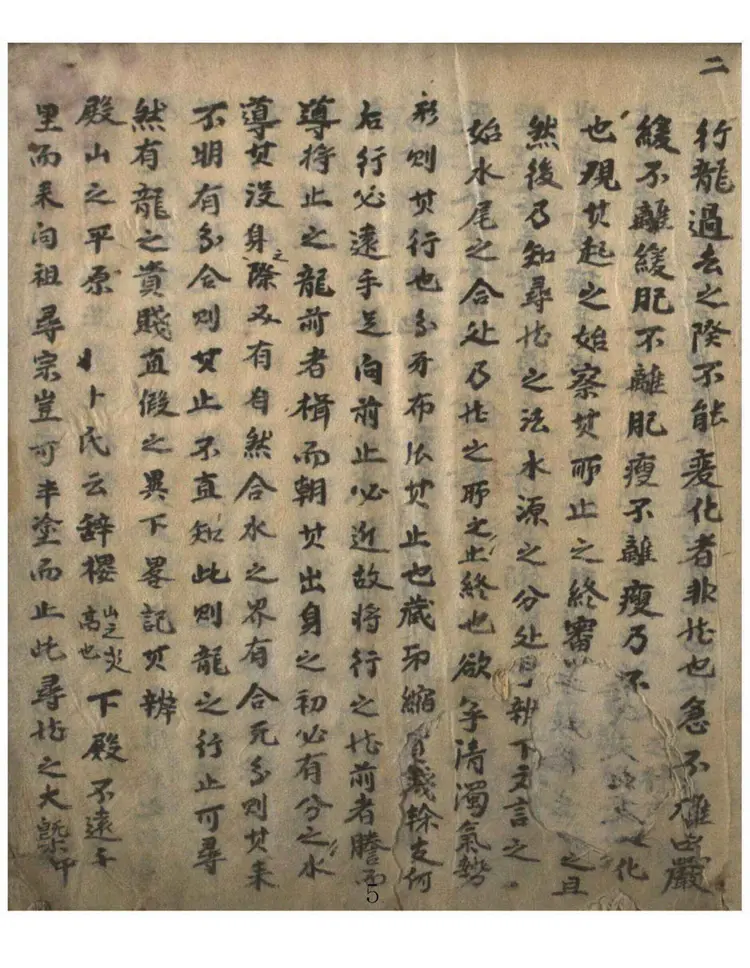 二
行龍過去之際不能変化者非龙也急不嚴
緩不離緩肥不離肥瘦不離瘦乃不化
也現其起之始察其所止之終審之且
然後乃知尋龙之法水源之分处辨下文言之
始水尾之合处乃龙之所之止終也欲清濁氣勢
形則其行也分牙布爪其止也藏牙縮餘支何
右行必遠手足向前止必近故将行之龙前者騰而
導将止之龍前者揖而朝其出身之初必有分之水
導其没身之際又有自然合水之界有合死分則其来
不明有分合則其止不直知此則龍之行止可尋
然有龍之貴賤直假之異下畧記其辨
殿山之平原 卜氏云辞樓山之炎高也下殿不遠千
里而来问祖尋宗豈可半塗而止此尋龙之大槩
5